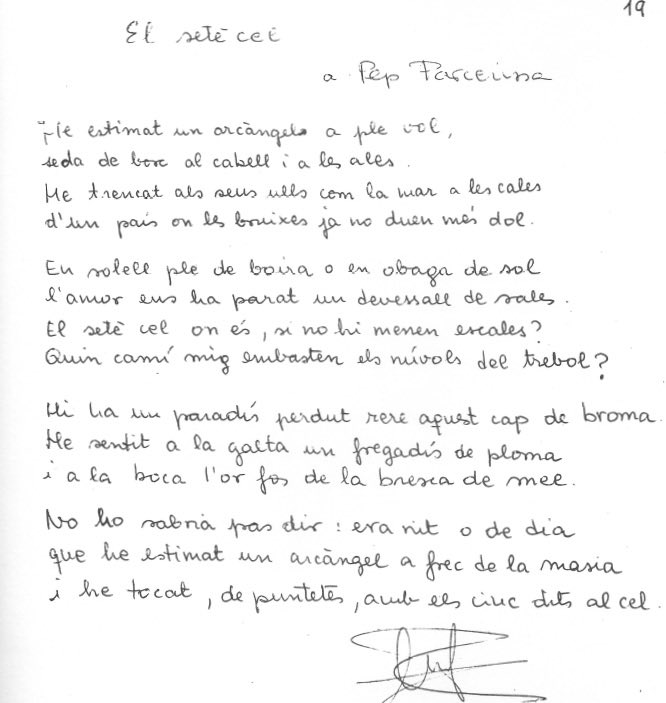 19
El setè cel
a Pep Parcerisa
He estimat un arcàngel a ple vol,
seda de borc al cabell i a les ales.
He trencat als seus ulls com la mar a les cales
d'un país on les bruixes ja no duen més dol.
En solell ple de boira o en obaga de sol
l'amor ens ha parat un devessall de sales.
El setè cel on és, si no hi menen escales?
Quin camí mig embasten els núvols del trebol?
Hi ha un paradís perdut rere aquest cap de broma.
He sentit a la galta un fregadís de ploma
i a la boca l'or fos de la bresca de mel.
No ho sabria pas dir: era nit o de dia
que he estimat un arcàngel a frec de la masia
i he tocat, de puntetes, amb els cinc dits al cel.